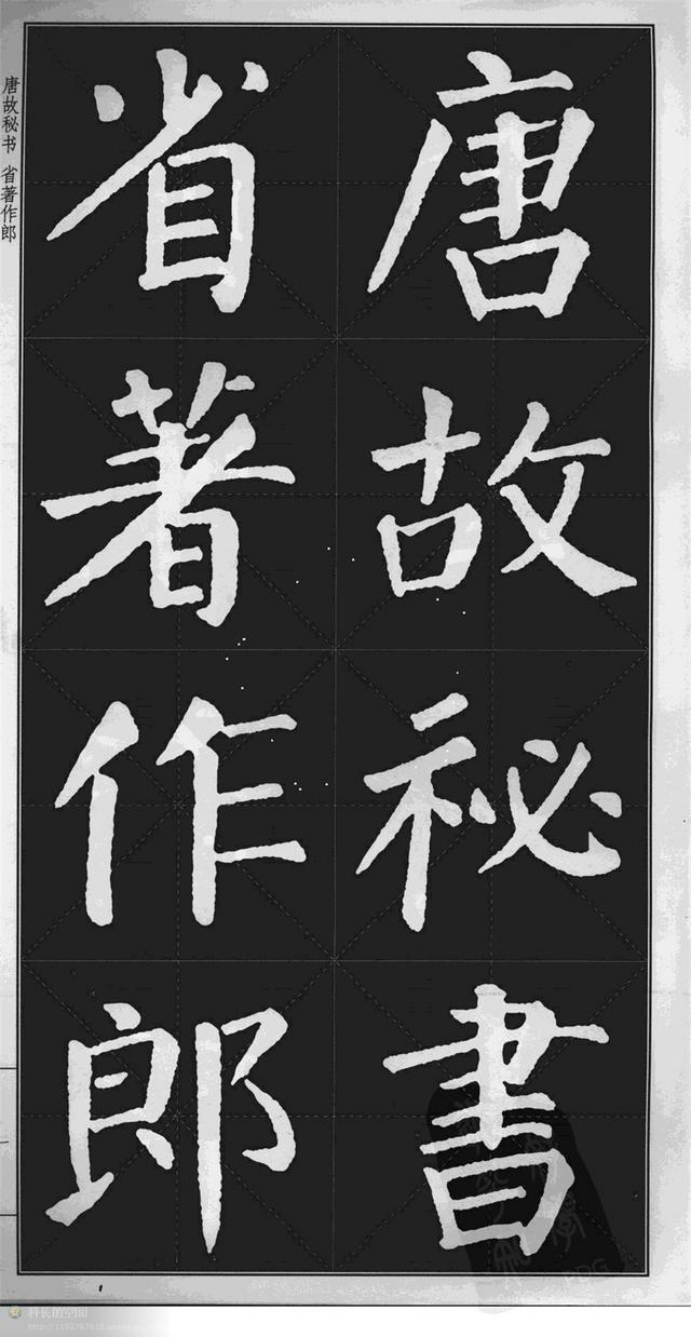 唐故秘書
省著作郎
唐故秘书 省著作郎